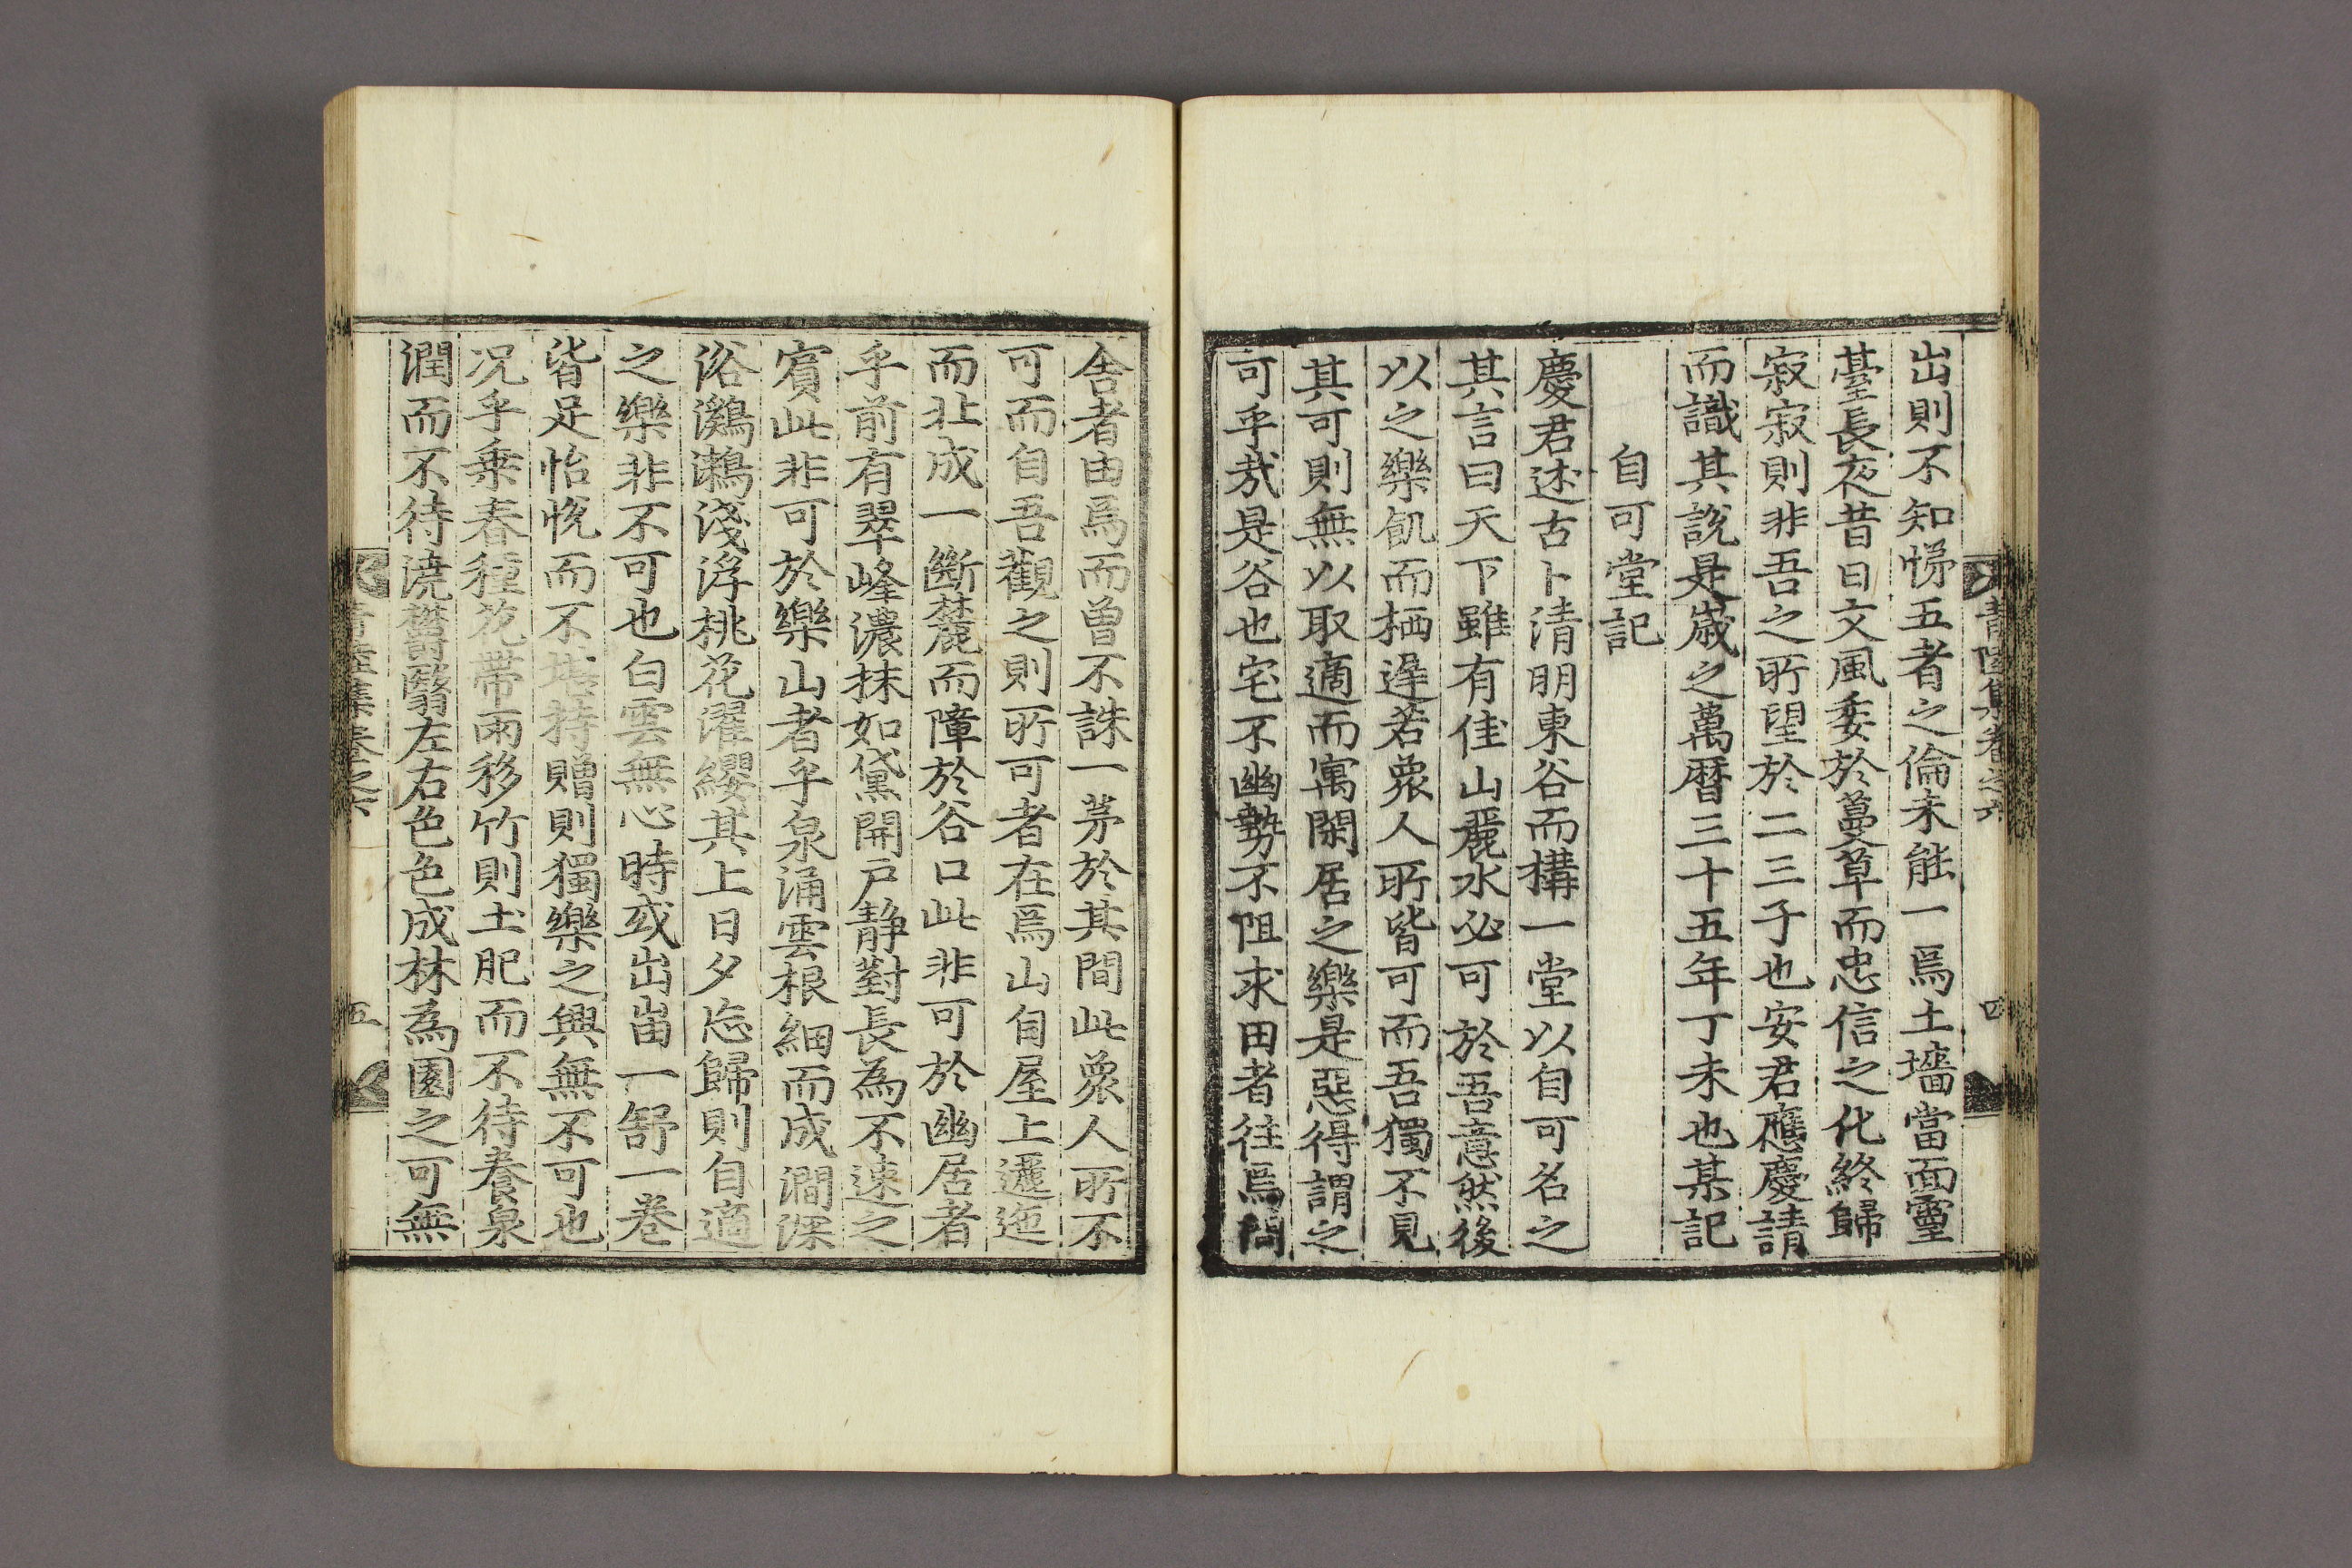 青陸集卷之六
四
出則不知悌五者之倫未能一焉土墻當面靈
臺長夜昔日文風委於蔓草而忠信之化終歸
寂寂則非吾之所望於二三子也安君應慶請
而識其說是歲之萬曆三十五年丁未也某記
自可堂記
慶君述古卜淸明東谷而構一堂以自可名之
其言曰天下雖有佳山麗水必可於吾意然後
以之樂飢而栖遲若衆人所皆可而吾獨不見
其可則無以取適而寓閑居之樂是惡得謂之
可乎哉是谷也宅不幽勢不阻求田者往焉問
舍者由焉而曾不誅一茅於其間此衆人所不
可而自吾觀之則所可者在焉山自屋上邐迤
而北成一斷麓而障於谷口此非可於幽居者
乎前有翠峰濃抹如黛開戶靜對長為不速之
賓此非可於樂山者乎泉涌雲根細而成澗深
浴鸂鶒淺浮桃花濯纓其上日夕忘歸則自適
之樂非不可也白雲無心時或出峀一舒一卷
皆足怡悅而不堪持贈則獨樂之興無不可也
况乎乗春種花帶雨移竹則土肥而不待養泉
潤而不待澆欝翳左右色色成林為園之可無
青陸集卷之六
五